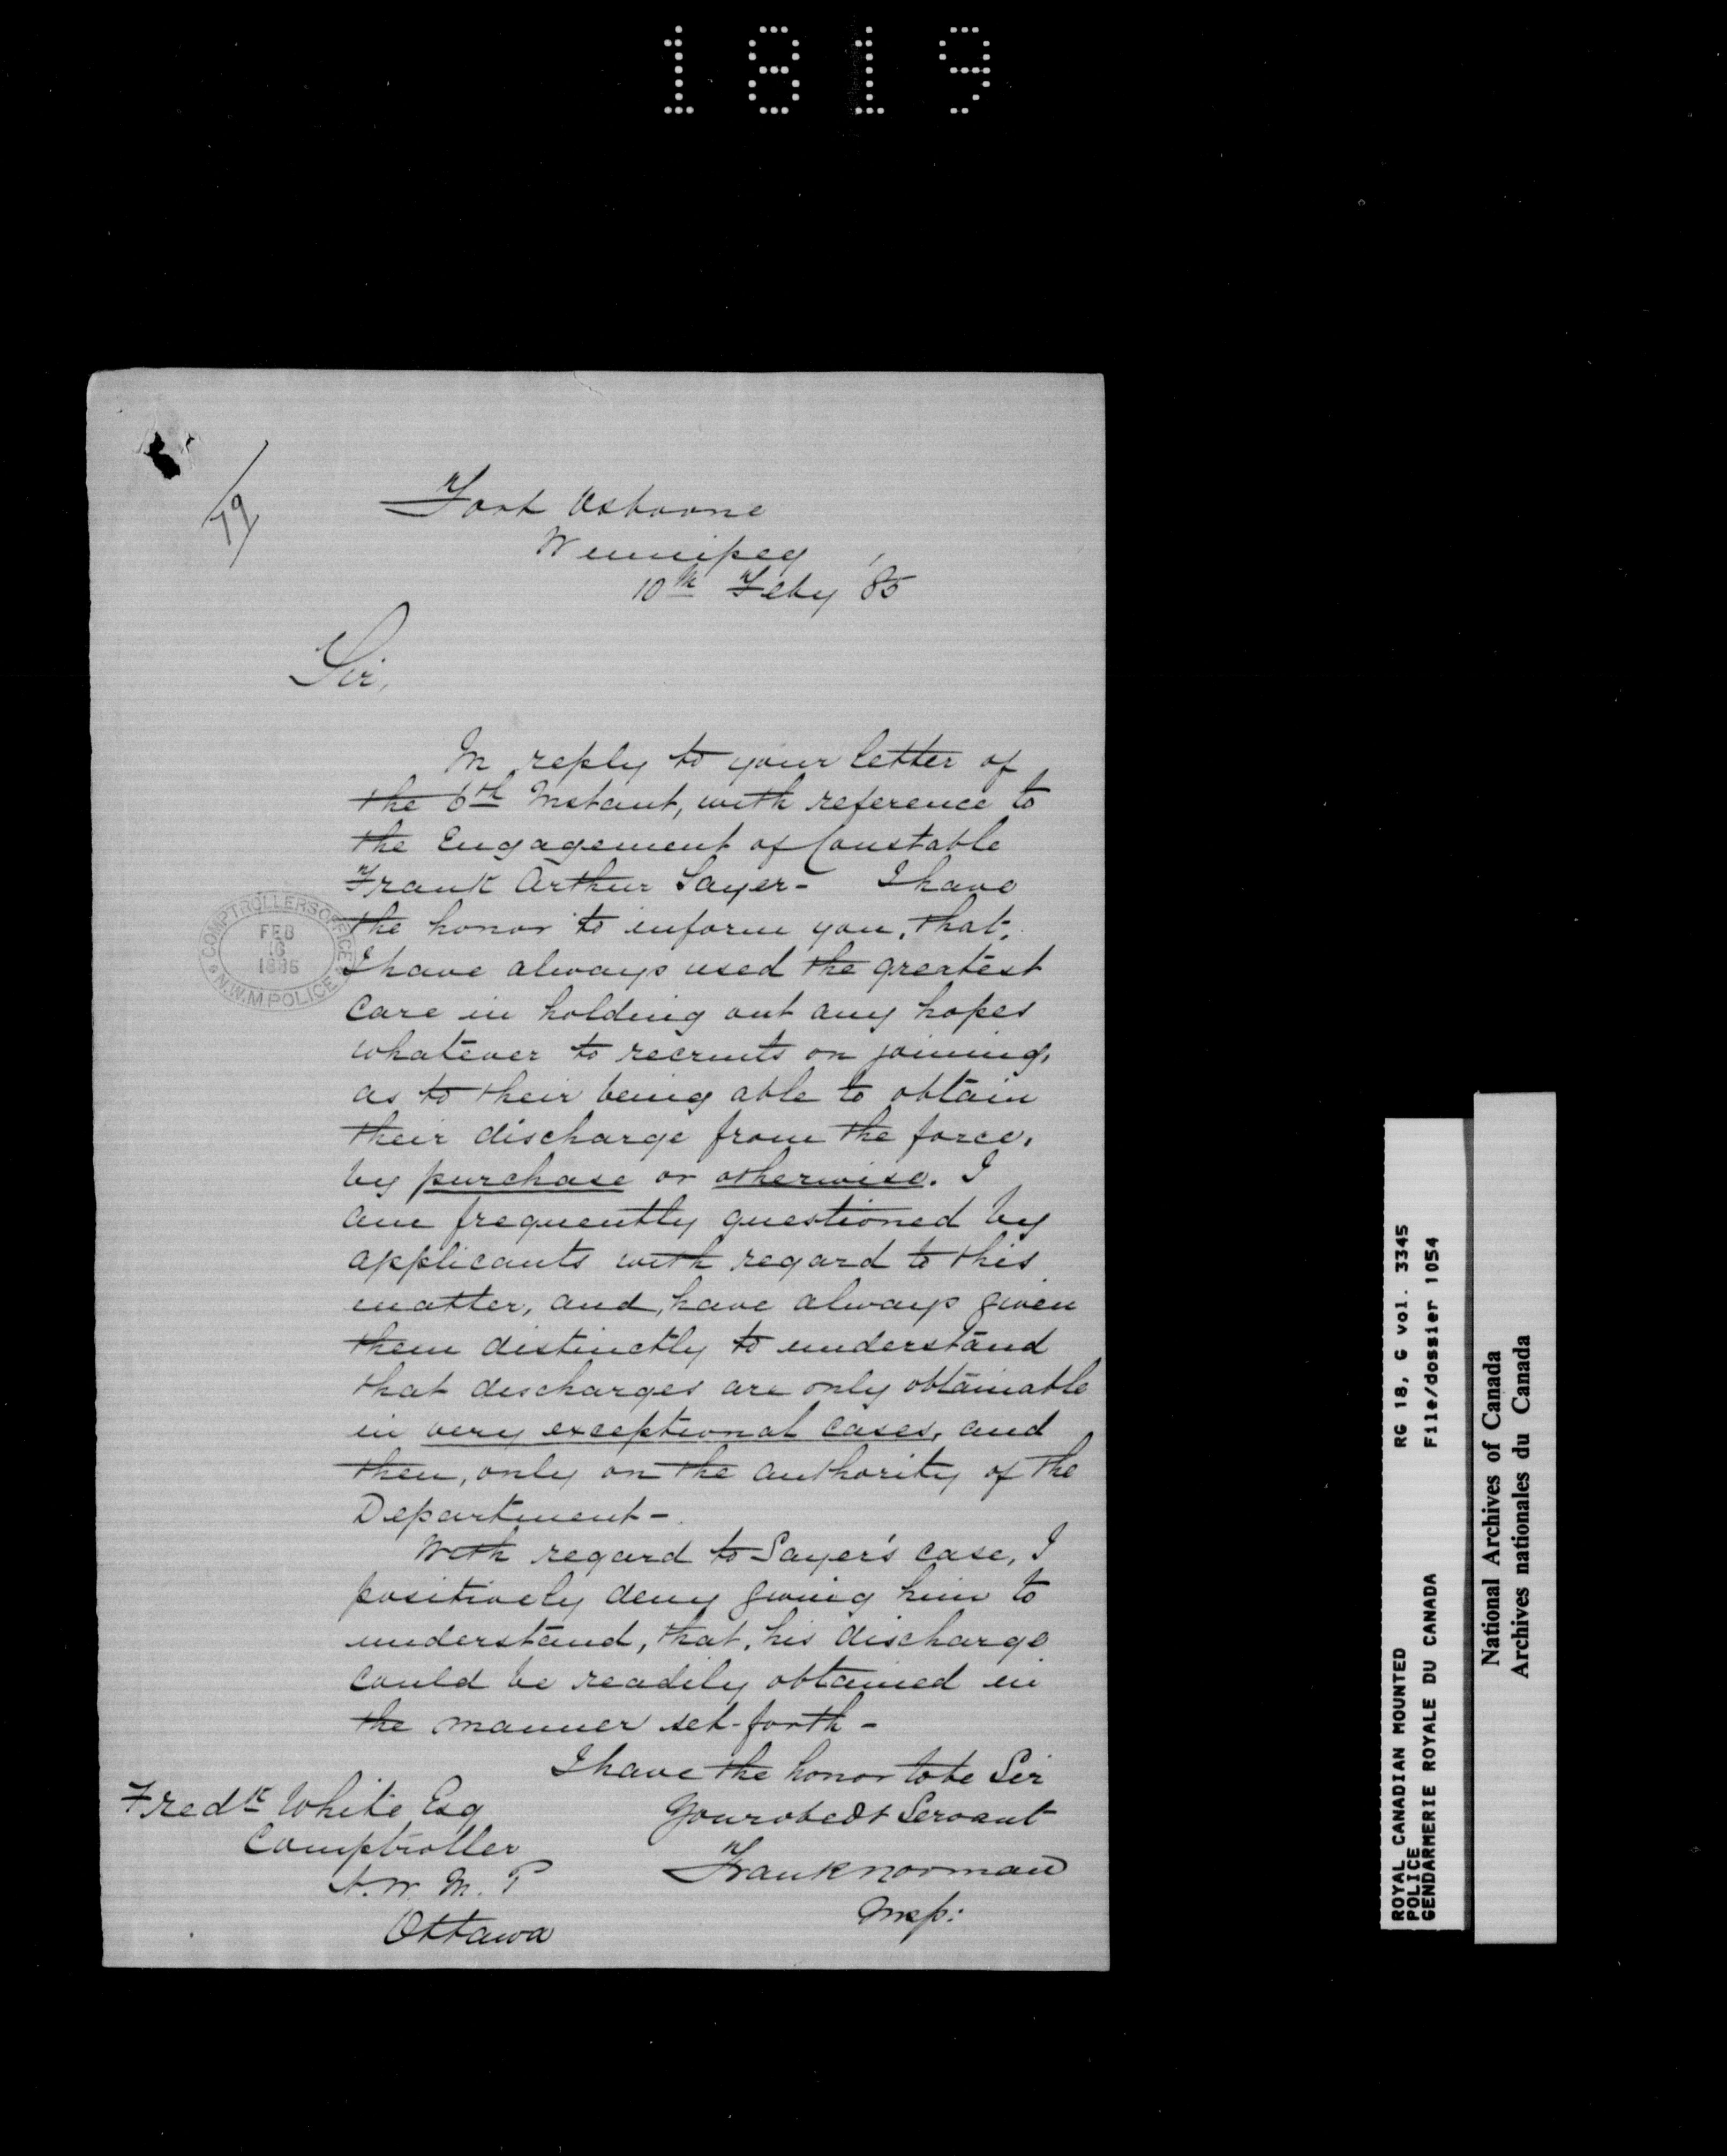 1819
79
Fort Osborne
Winnipeg
10th Feby '85
Sir,
In reply to your letter of
the 6th Instant, with reference to
the Engagement of Constable
Frank Arthur Sayer - I have
the honor to inform you, that,
I have always used the greatest
care in holding out any hopes
whatever to recruits on joining,
as to their being able to obtain
their discharge from the force,
by purchase or otherwise. I
am frequently questioned by
applicants with regard to this
matter, and, have always given
them distinctly to understand
that discharges are only obtainable
in very exceptional cases, and
then, only on the authority of the
Department -
With regard to Sayer's case, I
positively deny giving him to
understand, that, his discharge
could be readily obtained in
the manner set-forth -
I have the honor to be Sir
Your obedt Servant
Frank Norman
Insp:
Fredk White Esq
Comptroller
N.W.M.P
Ottawa
COMPTROLLERS OFFICE
FEB
16
1885
N.W.M.POLICE
ROYAL CANADIAN MOUNTED RG 18, G vol. 3345
POLICE
GENDARMERIE ROYALE DU CANADA File/dossier 1054
National Archives of Canada
Archives nationales du Canada